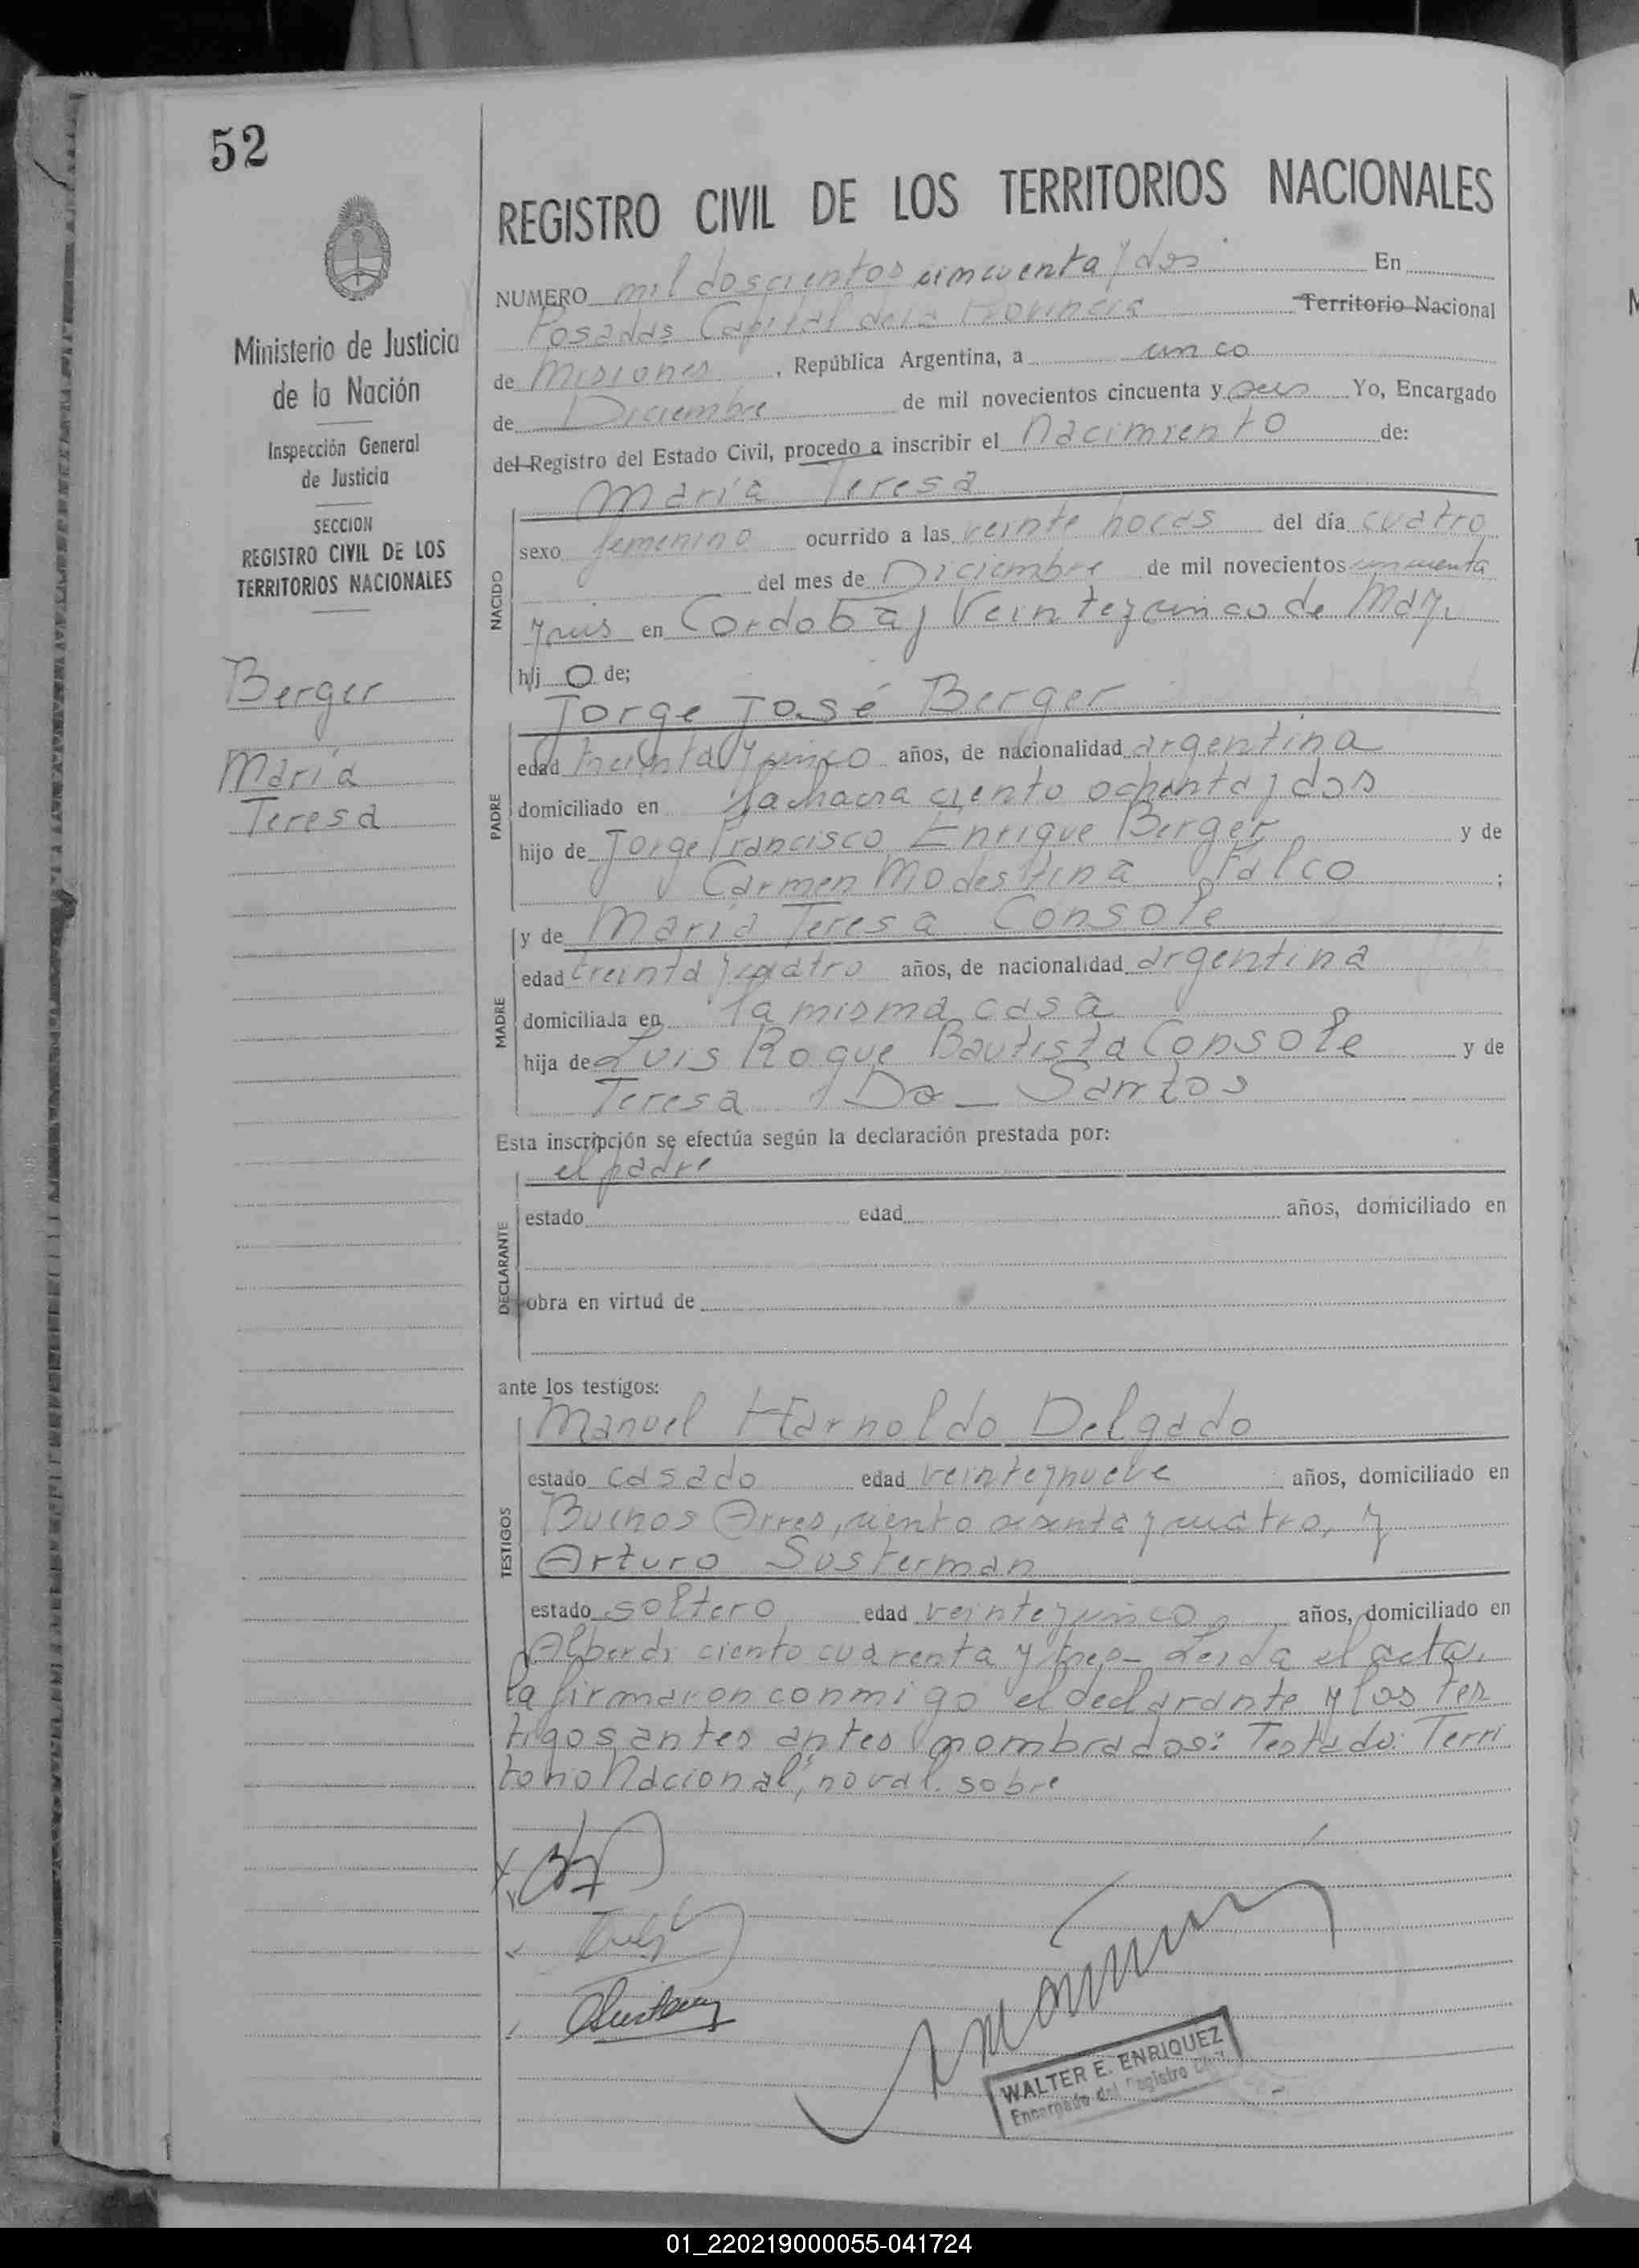 52
REGISTRO CIVIL DE LOS TERRITORIOS NACIONALES
NUMERO mil doscientos cincuenta y dos En
Posadas Capital de la Provincia Territorio Nacional
de Misiones, República Argentina, a cinco
de Diciembre de mil novecientos cincuenta y seis Yo, Encargado
del Registro del Estado Civil, procedo a inscribir el nacimiento de:
Maria Teresa
sexo femenino ocurrido a las veinte horas del día cuatro
del mes de Diciembre de mil novecientos cincuenta
y seis en Cordoba y Veinteycinco de May.
hij o de;
Jorge José Berger
edad treinta y cinco años, de nacionalidad argentina
domiciliado en la chacra ciento ochenta y dos
hijo de Jorge Francisco Enrique Berger y de
Carmen Modestina Falco ;
y de Maria Teresa Console
edad treinta y cuatro años, de nacionalidad argentina
domiciliada en la misma casa
hija de Luis Roque Bautista Console y de
Teresa Do_Santos
Esta inscripción se efectúa según la declaración prestada por:
el padre
estado edad años, domiciliado en
obra en virtud de
ante los testigos:
Manuel Harnoldo Delgado
estado casado edad veinteynueve años, domiciliado en
Buenos Aires, ciento sesenta y cuatro, y
Arturo Susterman
estado soltero edad veinteycinco años, domiciliado en
Alberdi ciento cuarenta y tres- Leida el acta,
la firmaron conmigo el declarante y los tes
tigos antes antes nombrados: Testado: Terri
torio Nacional, no val. sobre
WALTER E. ENRIQUEZ
Encargado del Registro Civil
Ministerio de Justicia
de la Nación
Inspección General
de Justicia
SECCION
REGISTRO CIVIL DE LOS
TERRITORIOS NACIONALES
Berger
Maria
Teresa
NACIDO
PADRE
MADRE
DECLARANTE
TESTIGOS
01_220219000055-041724